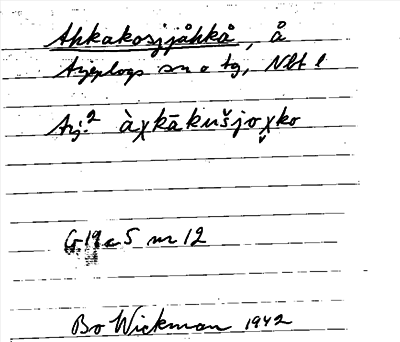 Ahkakosjjåhkå, å
Arjeplogs sn o tg, Nbt l
Arj.² àχkākušjoχ̌ko
G 19 c 5 nr 12
Bo Wickman 1942